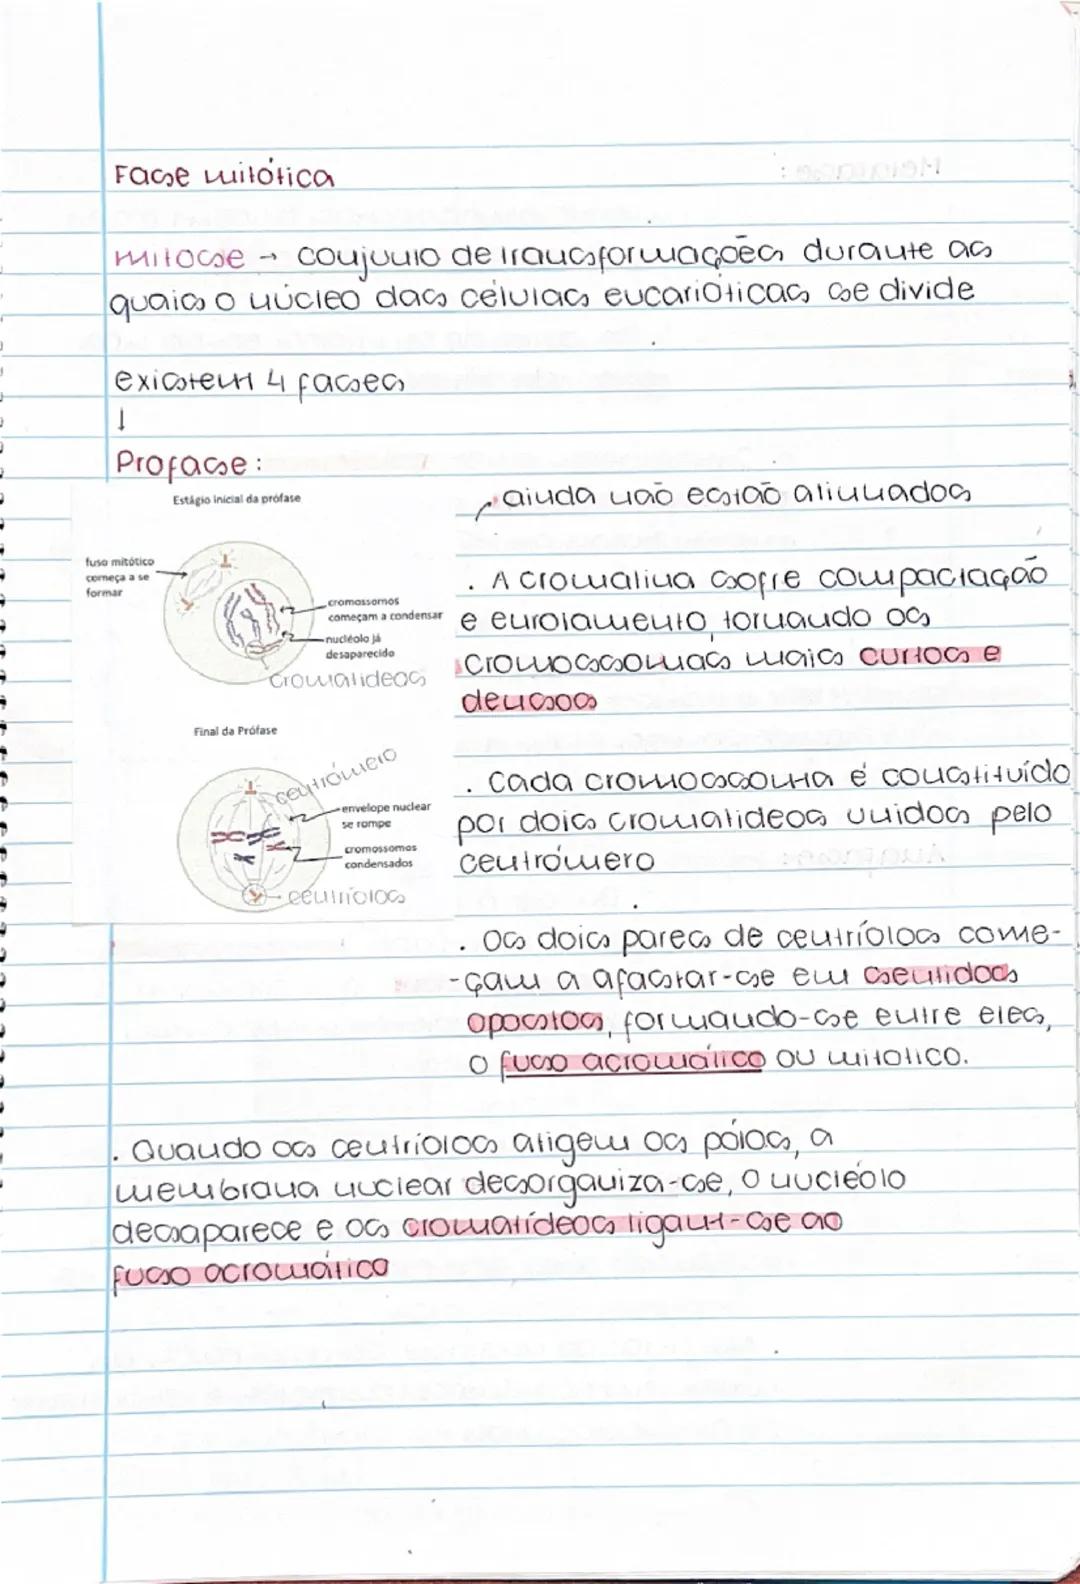 Fase mitótica
mitose → conjunto de transformações durante as
quais o núcleo das células eucarióticas se divide
existem 4 fases
↓
Profase:
Estágio inicial da prófase
fuso mitótico
começa a se
formar
cromossomos
começam a condensar
nucléolo já
desaparecido
cromatideos
Final da Prófase
centrómero
envelope nuclear
se rompe
cromossomos
condensados
centríolos
ainda não estão alinhados
. A cromatina sofre compactação
e enrolamento, tornando os
cromossomas mais curtos e
densos
. Cada cromossoma é constituído
por dois cromatideos unidos pelo
centrómero
. Os dois pares de centríolos come-
-çam a afastar-se em sentidos
opostos, formando-se entre eles,
o fuso acromático ou mitotico.
. Quando os centríolos atigem os pólos, a
membrana nuclear desorganiza-se, o nucléolo
desaparece e os cromatídeos ligam-se ao
fuso acromático